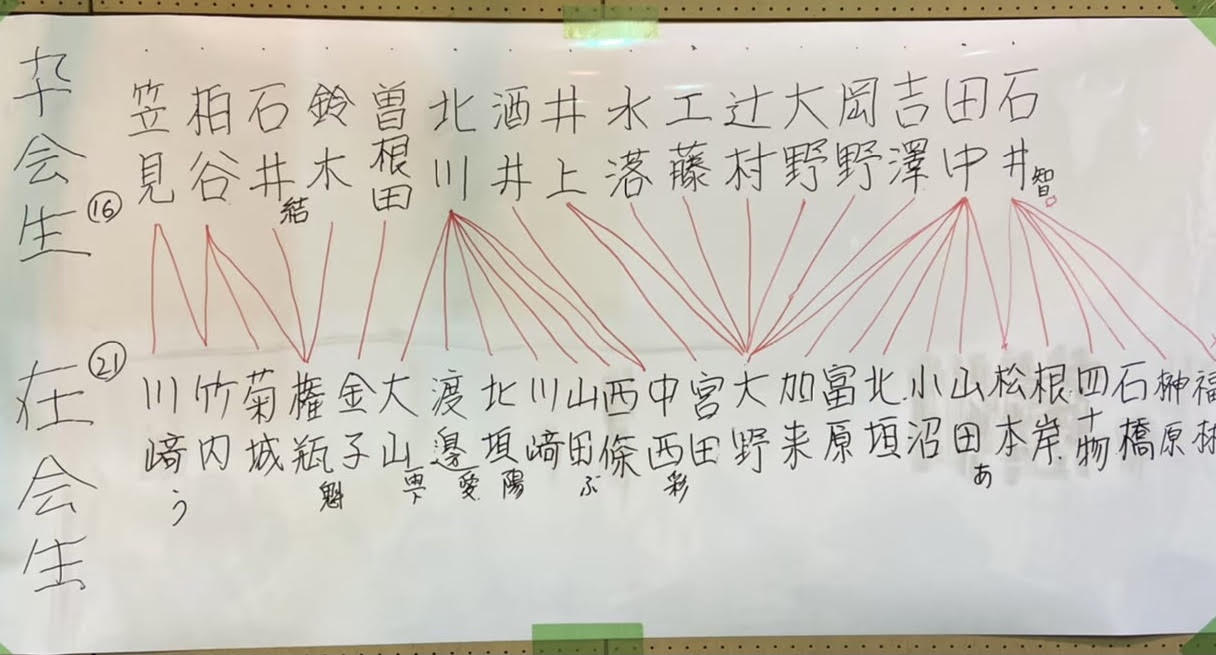 卆会生
⑯
笠見
柏谷
石井結
鈴木
曽根田
北川
酒井
井上
水落
工藤
辻村
大野
岡野
吉澤
田中
石井智
在会生
㉑
川﨑う
竹内
菊城
権瓶魁
金子
大山
渡邊愛
北垣陽
川﨑
山田ぶ
西條
中西彩
宮田
大野
加来
富原
北垣
小沼
山田あ
松本
根岸
四十物
石橋
榊原
福林